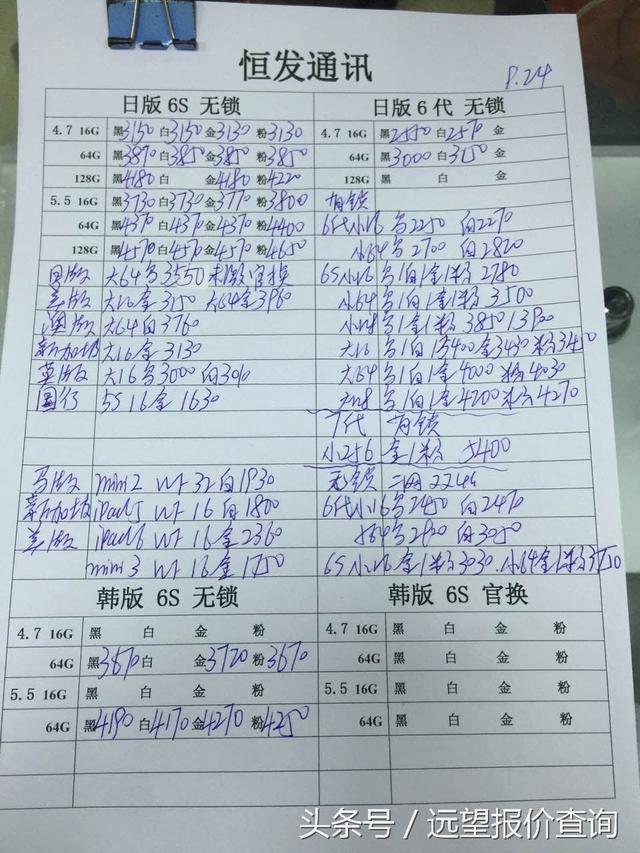 恒发通讯
8.24
日版 6S 无锁
4.7 16G 黑3150 白3150 金3130 粉3130
64G 黑3870 白3850 金3850 粉3850
128G 黑4180 白 金4180 粉4220
5.5 16G 黑3730 白3730 金3770 粉3800
64G 黑4370 白4370 金4370 粉4400
128G 黑4570 白4570 金4570 粉4650
大64 3550 未激官换
美版 大16金3150 大64金3960
澳版 大64白3760
新加坡 大16金3130
英版 大16 3000 白
国行 5S 16金 1630
mini2 wf 32白1930
新加坡 iPad5 wf 16白1800
美版 iPad6 wf 16金2360
mini3 wf 16金1750
日版 6代 无锁
4.7 16G 黑2550 白2570 金
64G 黑3000 白3150 金
128G 黑 白 金
有锁
6代小16 2250 白2270
小64 2700 白2820
6S小16 白 金 粉2780
小64 白 金 粉3500
金 粉3850 3900
大16 白 3400 金3430 粉3450
大64 白 金4000 粉4030
白 金4200 粉4270
7代 有锁
小256 金 粉 5400
无锁
6代小16 2450 白2470
白3050
6S小16金 粉3030 小64金 粉3750
韩版 6S 无锁
4.7 16G 黑 白 金 粉
64G 黑3670 白 金3720 粉3670
5.5 16G 黑 白 金 粉
64G 黑4190 白4170 金4270 粉4250
韩版 6S 官换
4.7 16G 黑 白 金 粉
64G 黑 白 金 粉
5.5 16G 黑 白 金 粉
64G 黑 白 金 粉
头条号 / 远望报价查询